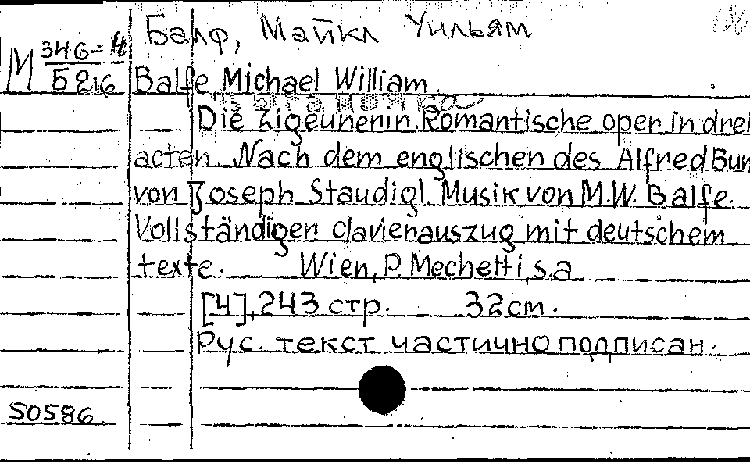 Балф, Майкл Уильям
М 346-4
Б 216
Balfe Michael William.
Die Zigeunerin. Romantische oper in drei
acten. Nach dem englischen des Alfred Bun
von Joseph Staudigl. Musik von M.W. Balfe.
Vollständigen clavierauszug mit deutschem
texte. Wien, P. Mechetti, s.a
[4], 243 стр. 32 cm.
Рус. текст частично подписан.
50586